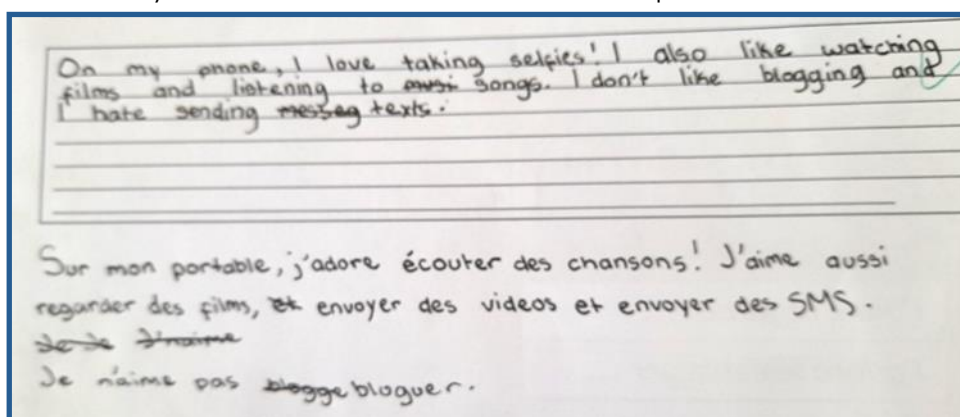 On my phone, I love taking selfies! I also like watching
films and listening to musi songs. I don't like blogging and
I hate sending messag texts.
Sur mon portable, j'adore écouter des chansons! J'aime aussi
regarder des films, et envoyer des videos et envoyer des SMS.
Je Je J'naime
Je n'aime pas blogge bloguer.